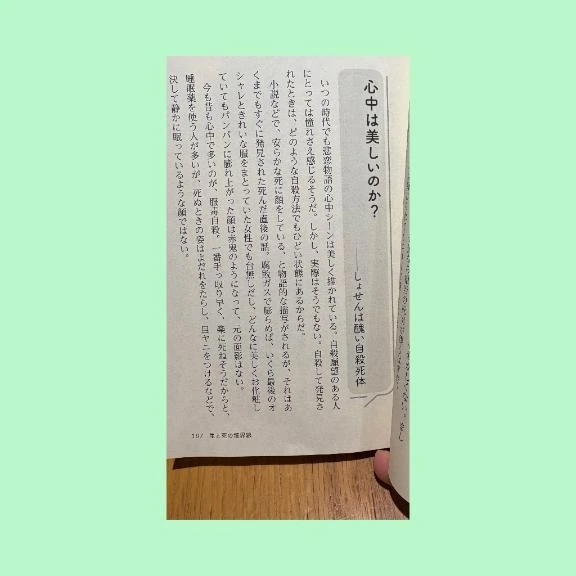 心中は美しいのか？
――しょせんは醜い自殺死体
いつの時代でも悲恋物語の心中シーンは美しく描かれている。自殺願望のある人
にとっては憧れさえ感じるそうだ。しかし、実際はそうでもない。自殺して発見さ
れたときは、どのような自殺方法でもひどい状態にあるからだ。
小説などで、安らかな死に顔をしている、と物語的な描写がされるが、それはあ
くまでもすぐに発見された死んだ直後の話。腐敗ガスで膨らめば、いくら最後のオ
シャレときれいな服をまとっていた女性でも台無しだし、どんなに美しくお化粧し
ていてもパンパンに膨れ上がった顔は赤鬼のようになって、元の面影はない。
今も昔も心中で多いのが、服毒自殺。一番手っ取り早く、楽に死ねそうだからと、
睡眠薬を使う人が多いが、死ぬときの姿はよだれをたらし、目ヤニをつけるなどで、
決して静かに眠っているような顔ではない。
197 生と死の境界線